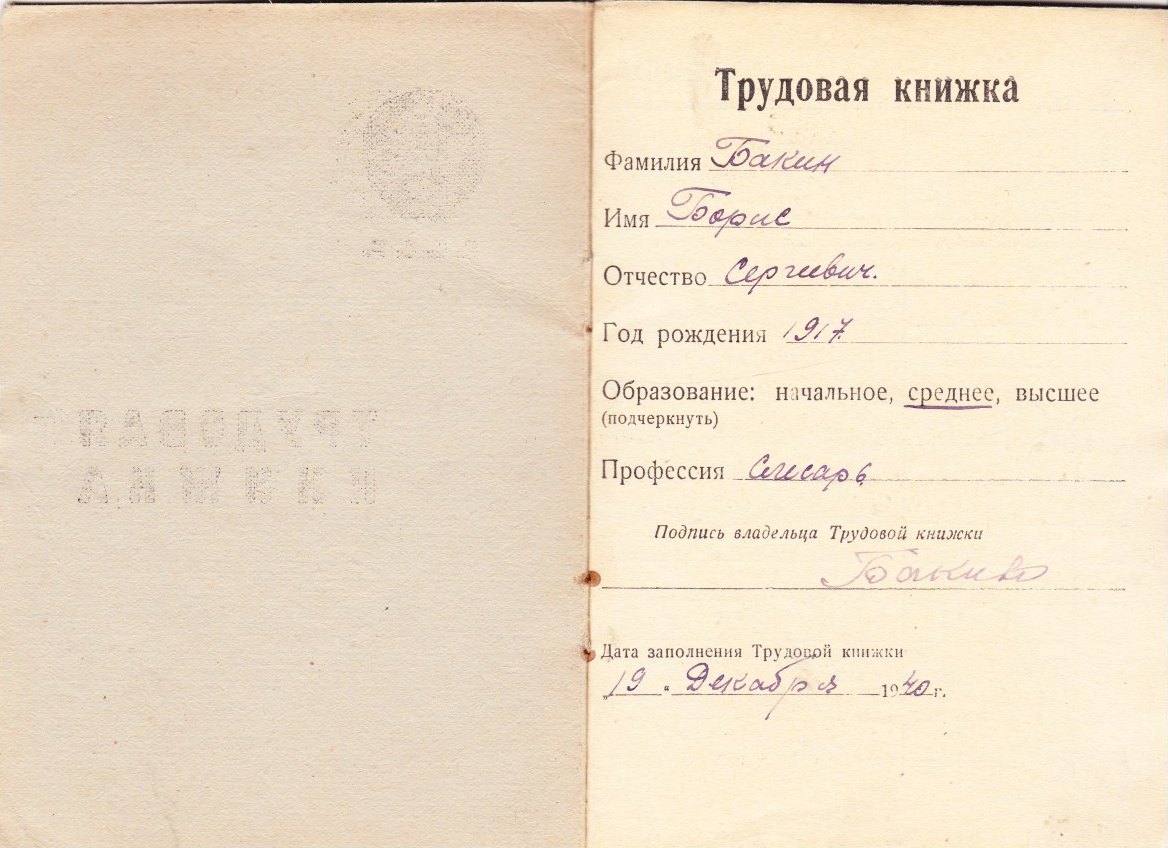 ТРУДОВАЯ
КНИЖКА
Трудовая книжка
Фамилия Бакин
Имя Борис
Отчество Сергиевич.
Год рождения 1917
Образование: начальное, среднее, высшее
(подчеркнуть)
Профессия Слесарь
Подпись владельца Трудовой книжки
Дата заполнения Трудовой книжки
„19" Декабря 1940 г.